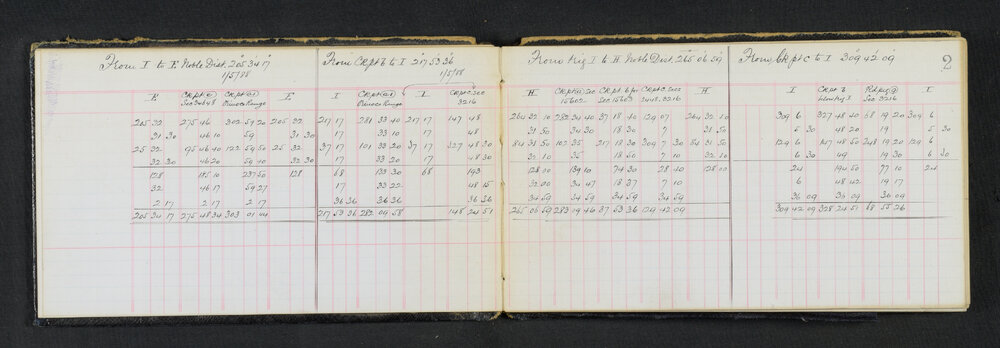 From I to E Noble Dist. 205 34 17
1/5/88
E Ck pt @ Ck pt @ E
205 32 275 46 302 59 20 205 32
31 30 46 10 59 31 30
25 32 95 46 40 122 59 50 25 32
32 30 46 20 59 40 32 30
128 185 10 237 50 128
32 46 17 59 27
2 17 2 17 2 17
205 34 17 275 48 34 303 01 44
From Ck pt b to I 217 53 36
1/5/88
I Ck pt @ I Ck pt c Sec
3216
217 17 281 33 40 217 17 147 48
17 33 10 17 48
37 17 101 33 20 37 17 327 48 30
17 33 20 17 48 30
68 133 30 68 193
17 33 22 48 15
36 36 36 36 36 36
217 53 36 282 09 58 148 24 51
From trig I to H Noble Dist 265 06 59
H Ck pt @ Sec Ck pt b for Ck pt c Sec H
15602 Sec 15603 3216
264 32 10 282 34 40 37 18 40 129 07 264 32 10
31 50 34 30 18 30 7 31 50
84 31 50 102 35 217 18 30 309 7 30 84 31 50
32 10 35 18 50 7 10 32 10
128 00 139 10 74 30 28 40 128 00
32 00 34 47 18 37 7 10
34 59 34 59 34 59 34 59
265 06 59 283 09 46 37 53 36 129 42 09
From Ck pt c to I 309 42 09
2
I Ck pt b I
Sec 3216
309 6 327 48 40 68 19 20 309 6
5 30 48 20 19 5 30
129 6 147 48 50 248 19 20 129 6
6 30 49 19 30 6 30
24 194 50 77 10 24
6 48 42 19 17
36 09 36 09 36 09
309 42 09 328 24 51 68 55 26